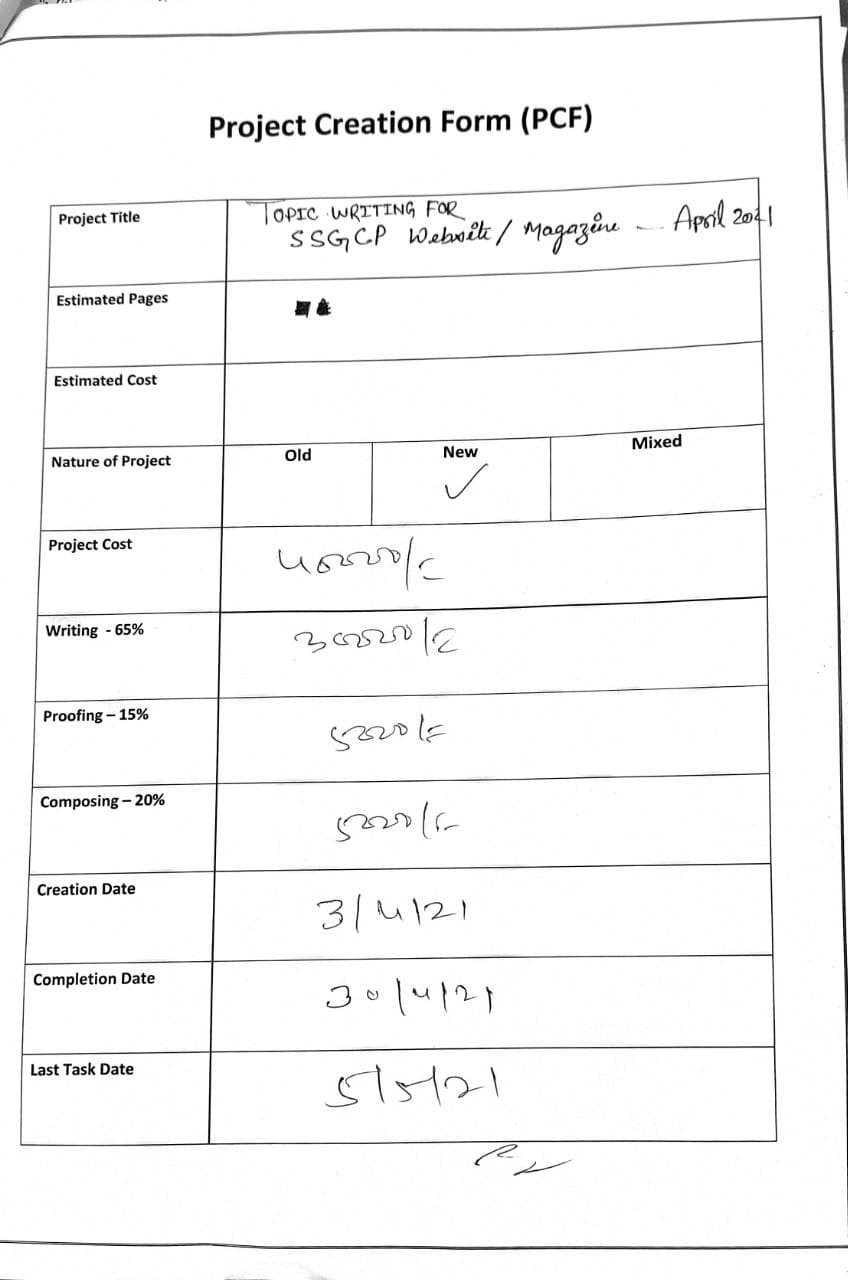 Project Creation Form (PCF)
Project Title
TOPIC WRITING FOR
SSGCP Website / Magazine - April 2021
Estimated Pages
Estimated Cost
Nature of Project
Old
New
✓
Mixed
Project Cost
40000/=
Writing - 65%
30000/=
Proofing – 15%
5000/=
Composing – 20%
5000/=
Creation Date
3/4/21
Completion Date
30/4/21
Last Task Date
5/5/21